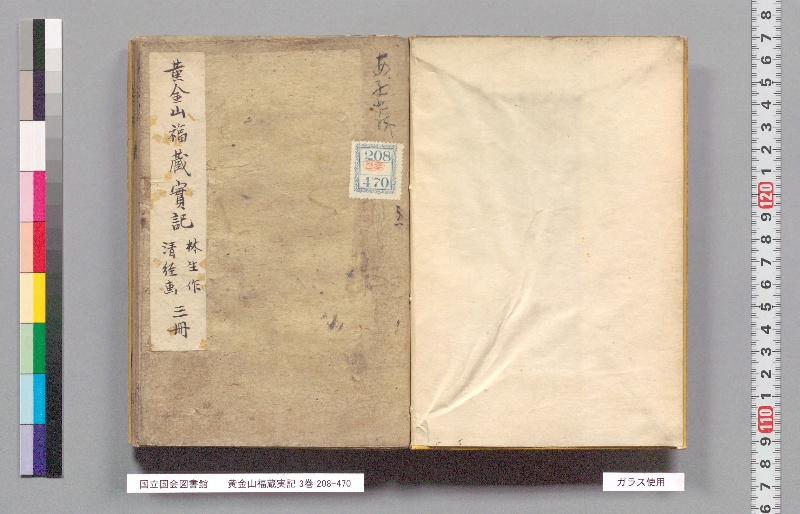 黄金山福藏實記
林生作
清経画
三冊
208
470
国立国会図書館 黄金山福蔵実記 3巻 208-470
ガラス使用
8
7
6
5
4
3
2
1
120
9
8
7
6
5
4
3
2
1
110
9
8
7
6